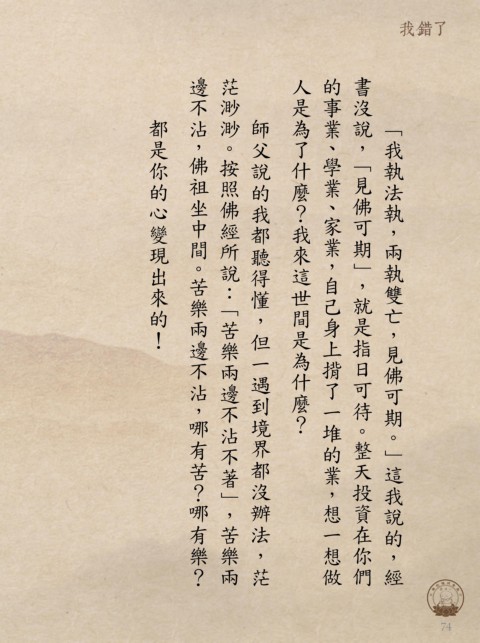 我錯了
「我執法執，兩執雙亡，見佛可期。」這我說的，經
書沒說，「見佛可期」，就是指日可待。整天投資在你們
的事業、學業、家業，自己身上揹了一堆的業，想一想做
人是為了什麼？我來這世間是為什麼？
師父說的我都聽得懂，但一遇到境界都沒辦法，茫
茫渺渺。按照佛經所說：「苦樂兩邊不沾不著」，苦樂兩
邊不沾，佛祖坐中間。苦樂兩邊不沾，哪有苦？哪有樂？
都是你的心變現出來的！
74